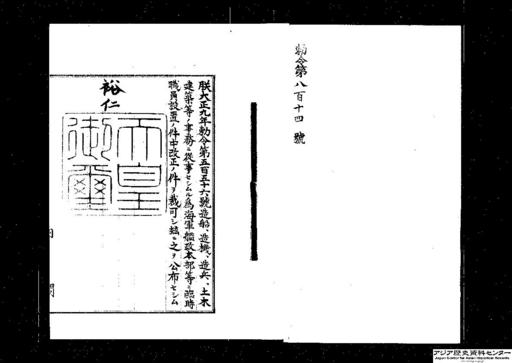 勅令第八百十四號
朕大正九年勅令第五百五十六號造船、造機、造兵、土木
建築等ノ事務ニ從事セシムル爲海軍艦政本部等ニ臨時
職員設置ノ件中改正ノ件ヲ裁可シ茲ニ之ヲ公布セシム
裕仁
天皇
御璽
アジア歴史資料センター
Japan Center for Asian Historical Records